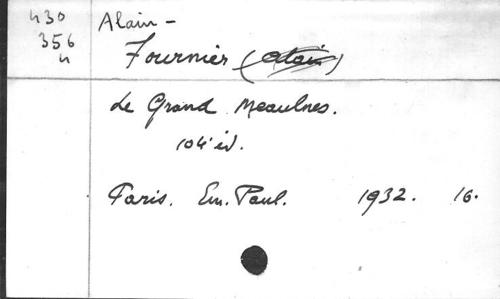 430
356
4
Alain-
Fournier (Alain)
Le Grand Meaulnes.
104e éd.
Paris. Em. Paul. 1932. 16.